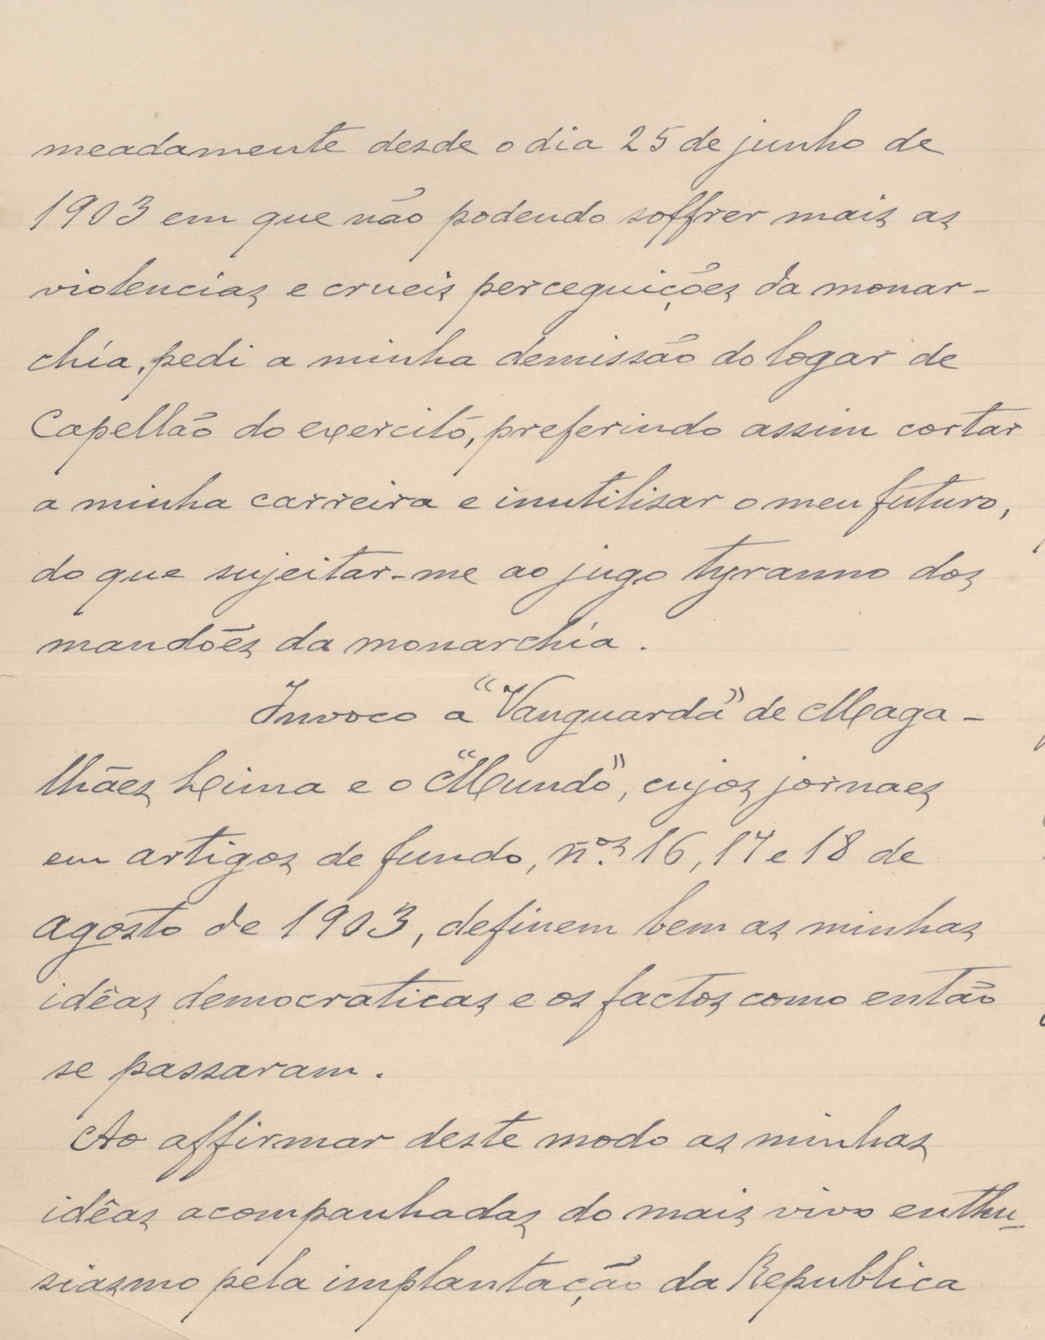 meadamente desde o dia 25 de junho de
1903 em que não podendo soffrer mais as
violencias e crueis perceguições da monar-
chia, pedi a minha demissão do logar de
Capellão do exercitó, preferindo assim cortar
a minha carreira e inutilisar o meu futuro,
do que sujeitar-me ao jugo tyranno dos
mandões da monarchia.
Invoco a "Vanguarda" de Maga-
lhães Lima e o "Mundo", cujos jornaes
em artigos de fundo, n.os 16, 17 e 18 de
agosto de 1903, definem bem as minhas
idêas democraticas e os factos como então
se passaram.
Ao affirmar deste modo as minhas
idêas acompanhadas do mais vivo enthu-
siasmo pela implantação da Republica